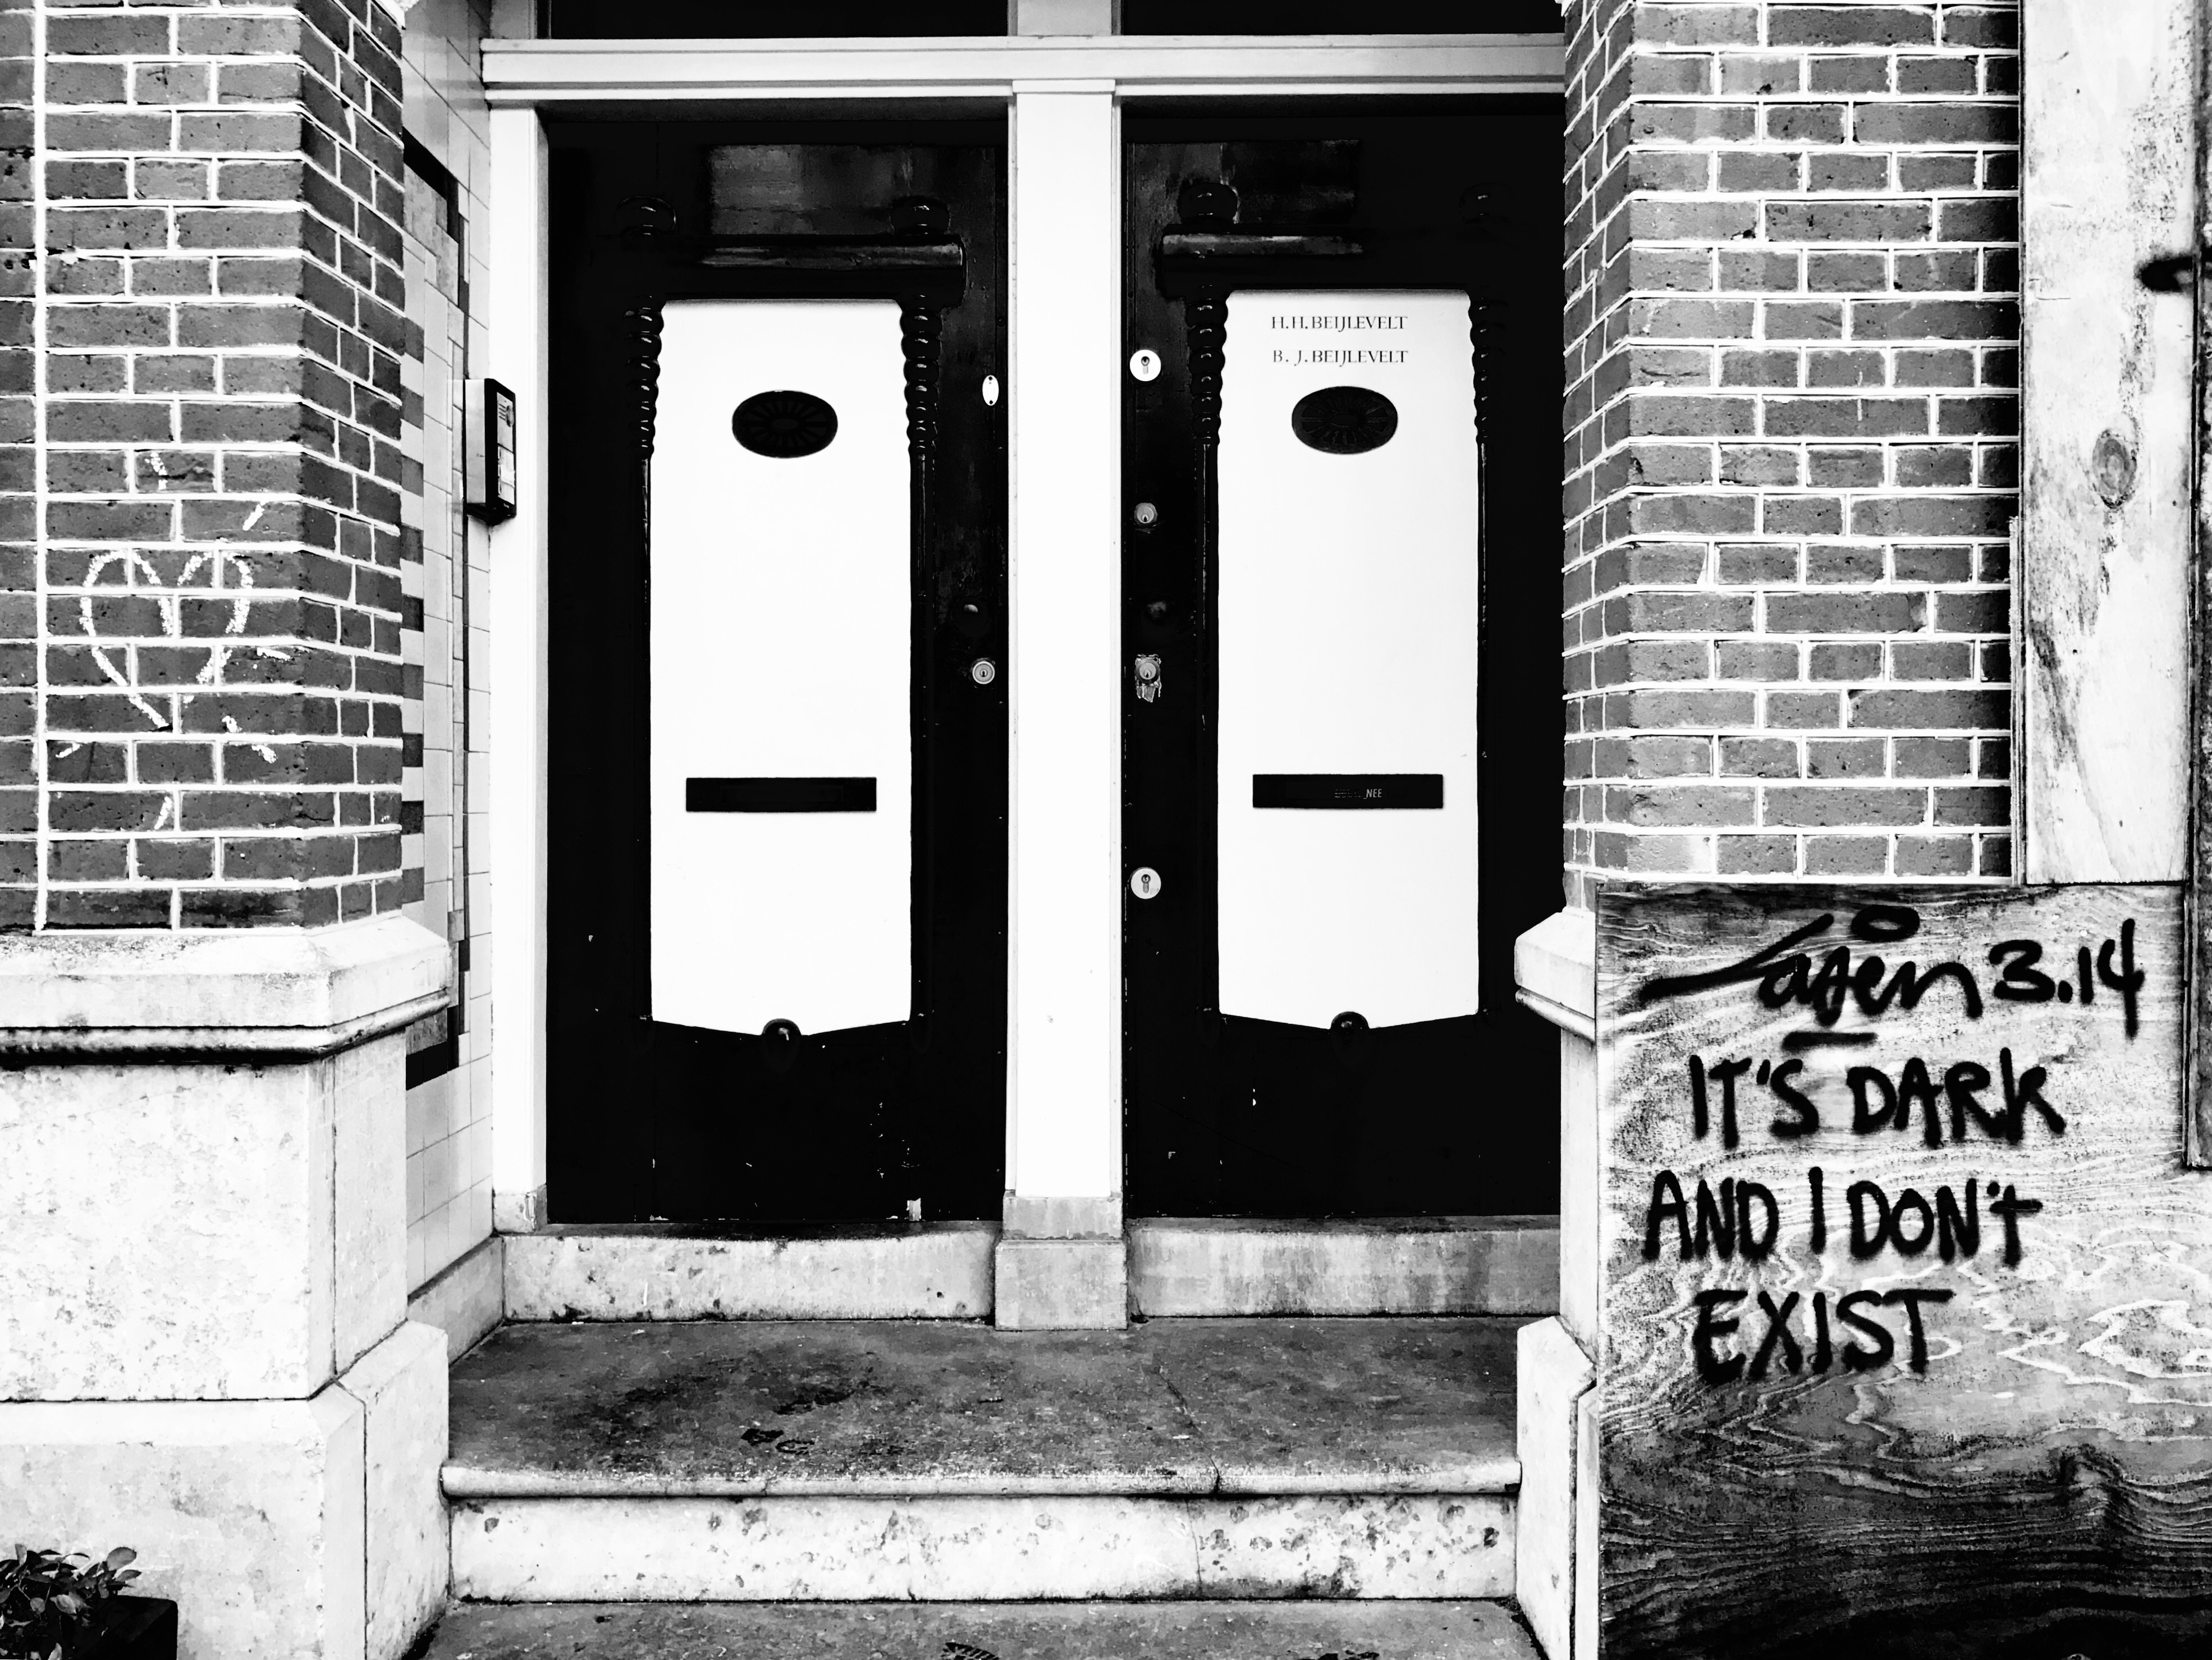 H.H. BEIJLEVELT
B. J. BEIJLEVELT
NEE
Laser 3.14
IT'S DARK
AND I DON't
EXIST